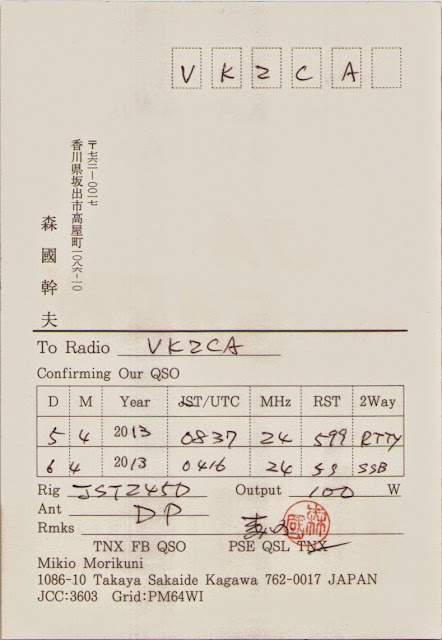 VK2CA
〒七六二-〇〇一七
香川県坂出市高屋町一〇八六-一〇
森國幹夫
To Radio VK2CA
Confirming Our QSO
D M Year JST/UTC MHz RST 2Way
5 4 2013 0837 24 599 RTTY
6 4 2013 0416 24 59 SSB
Rig JST245D Output 100 W
Ant DP
Rmks
TNX FB QSO PSE QSL TNX
Mikio Morikuni
1086-10 Takaya Sakaide Kagawa 762-0017 JAPAN
JCC:3603 Grid:PM64WI